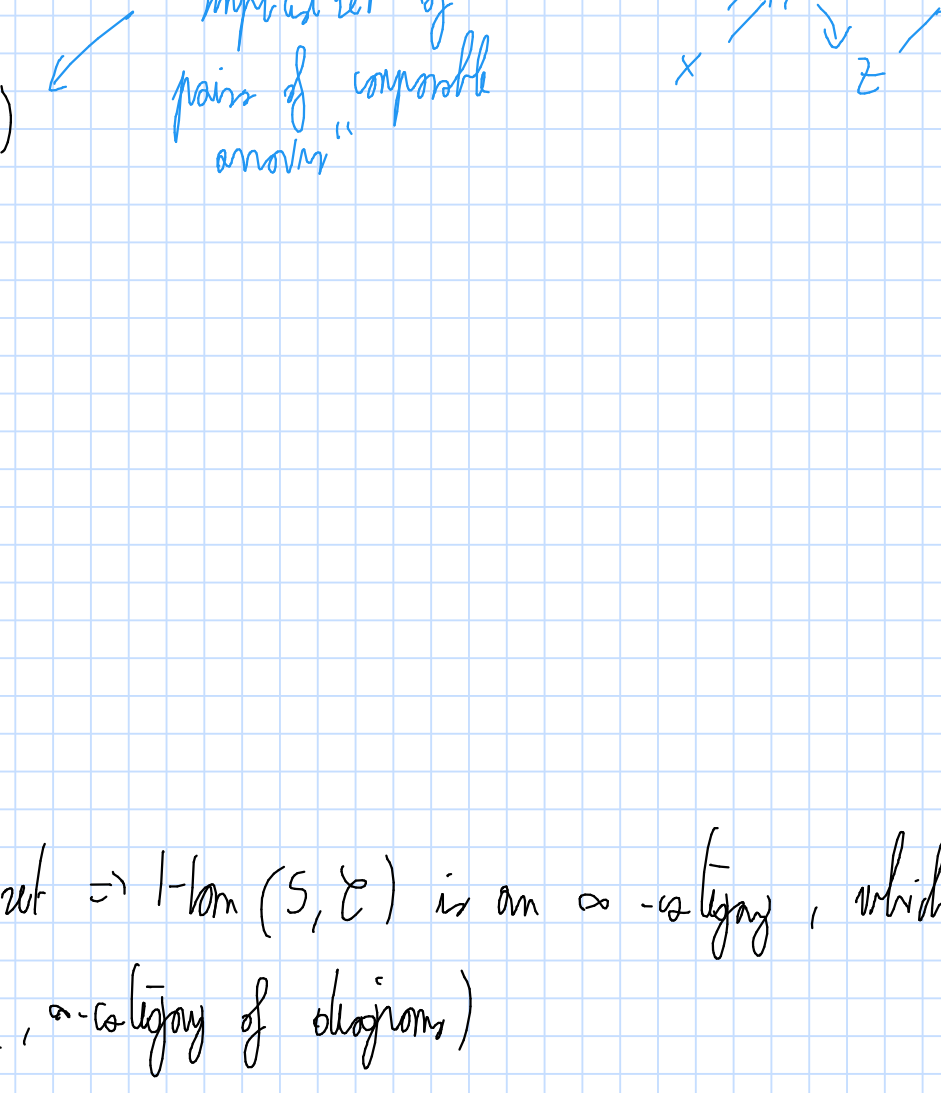 simplicial set of
pairs of composable
arrows"
X Z
)
set => Hom (S, C) is an ∞-category, which
, ∞-category of diagrams)